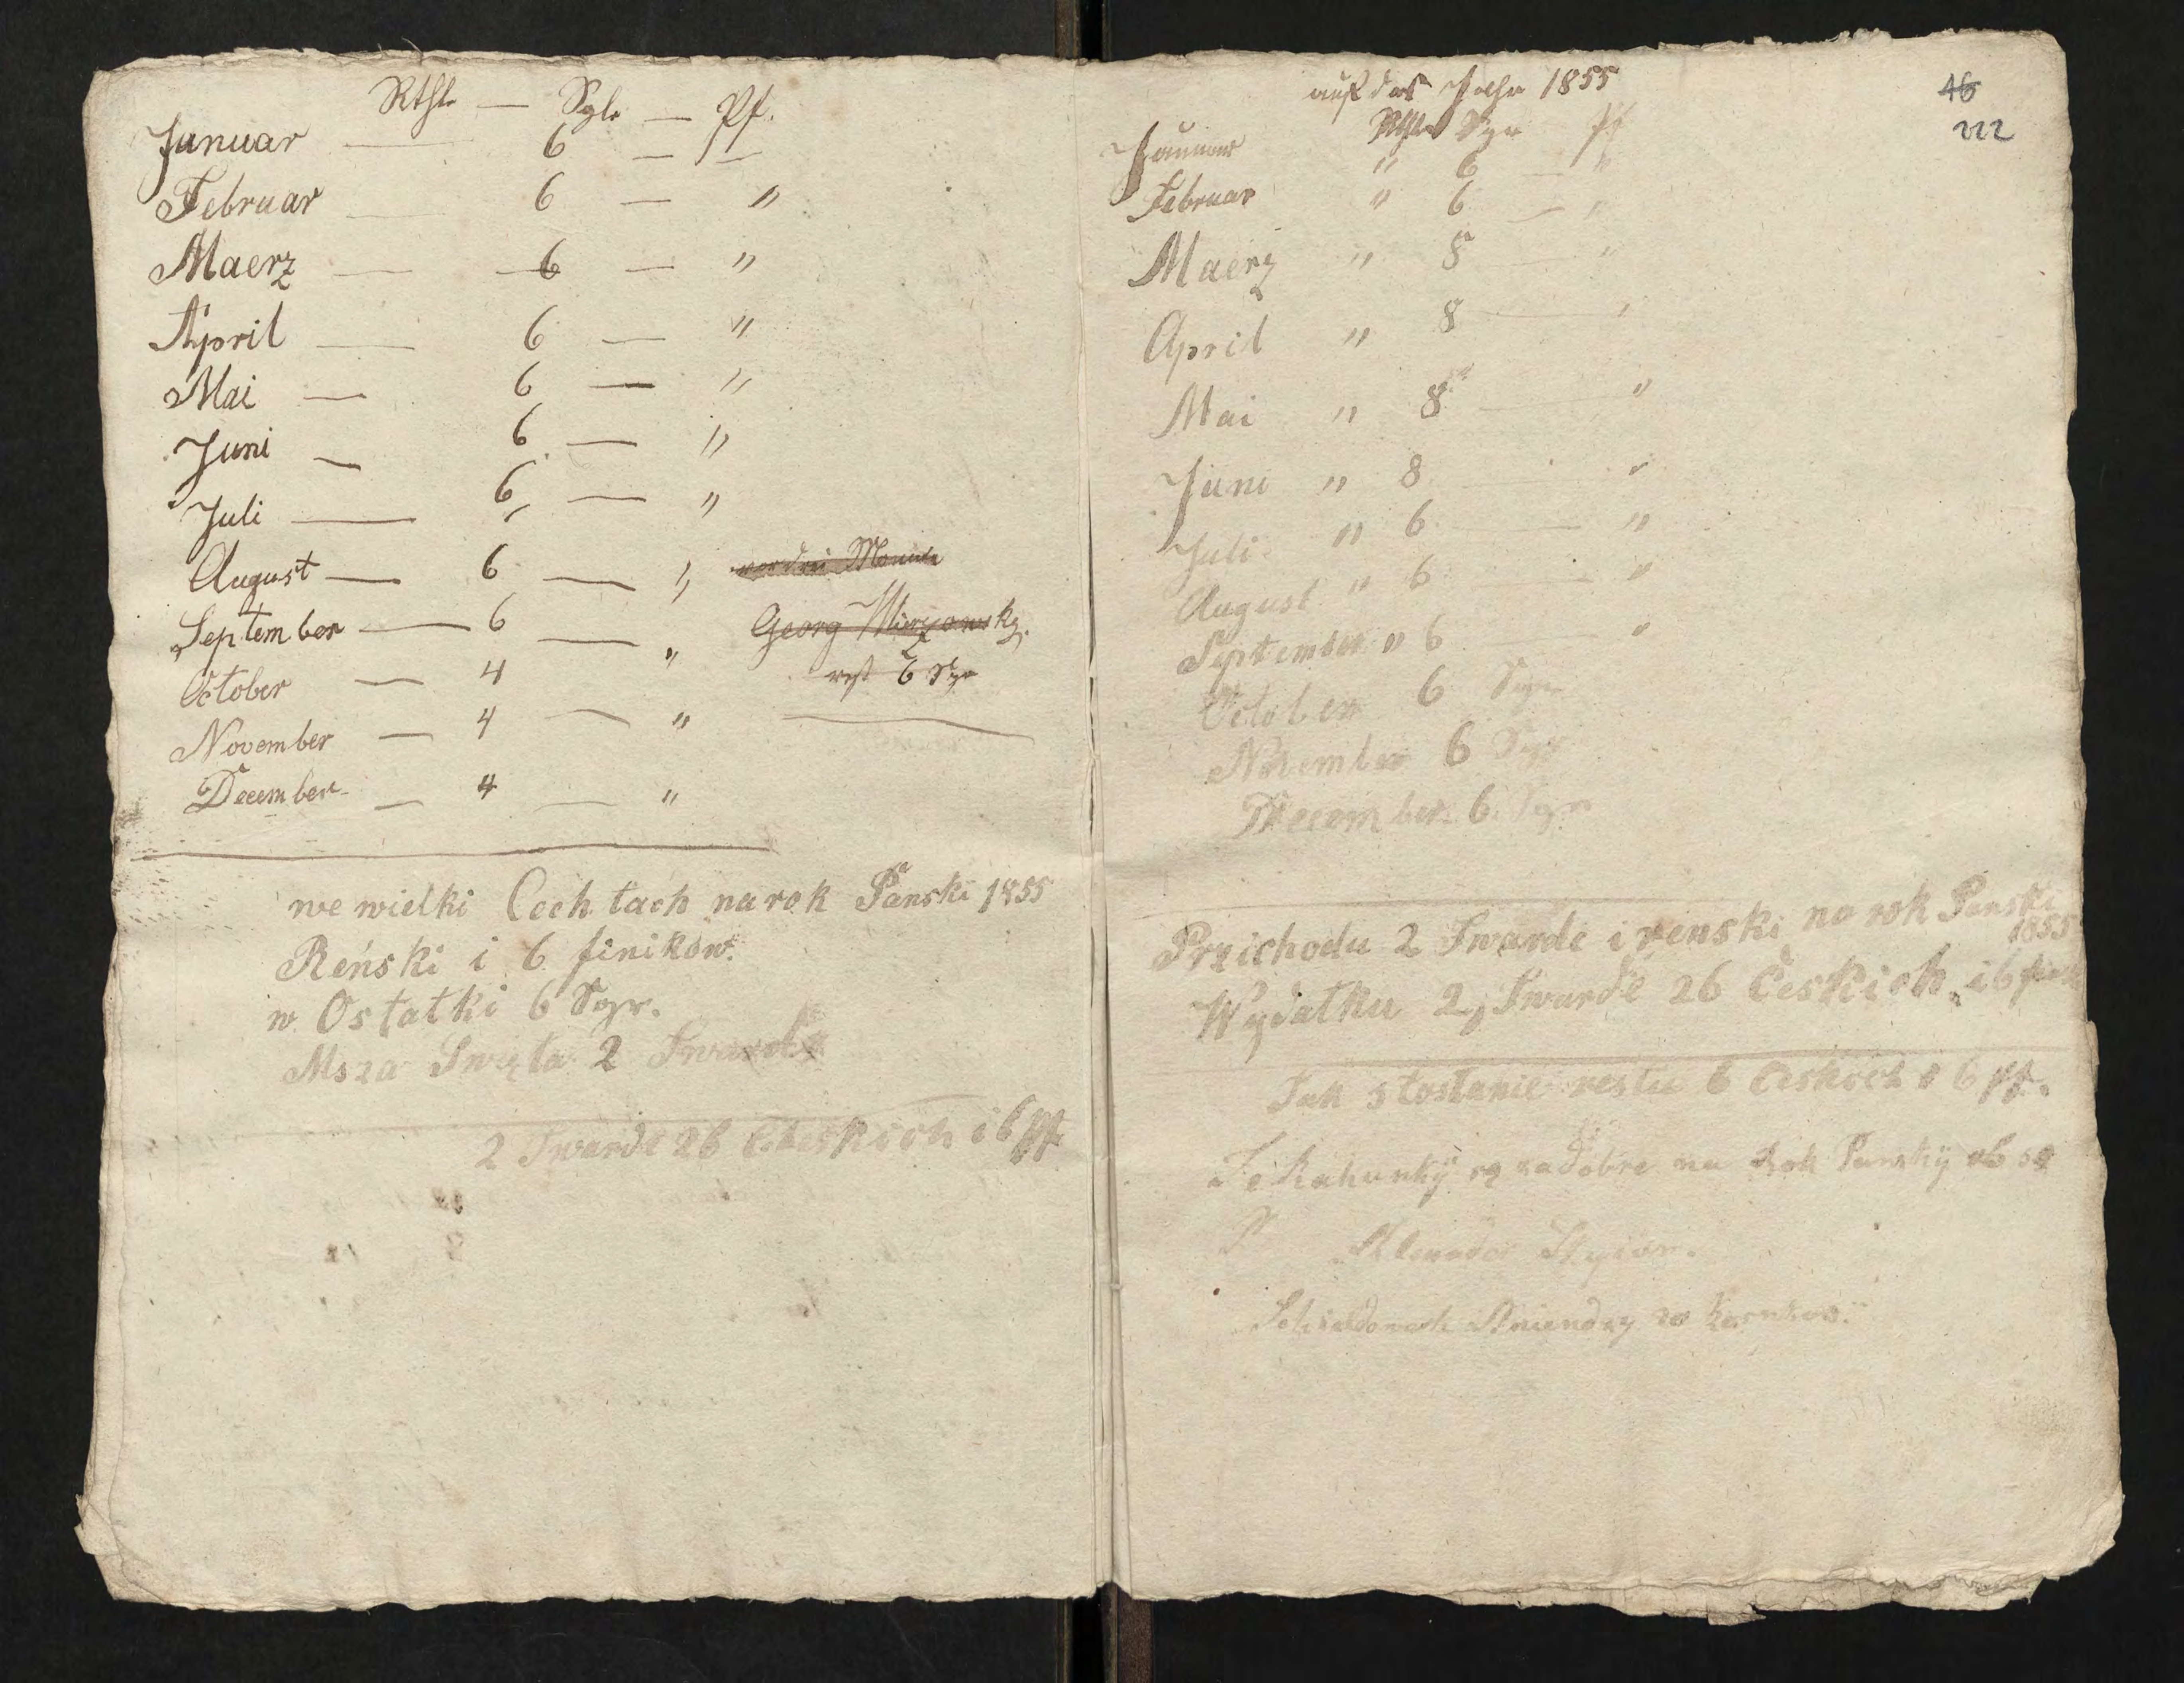 Rthl. — Sgl. — Pf.
Januar — 6 — —
Februar — 6 — "
Maerz — 6 — "
April — 6 — "
Mai — 6 — "
Juni — 6 — "
Juli — 6 — "
August — 6 — "
September — 6 — "
October — 4
November — 4 — "
December — 4 — "
vor drei Monate
Georg
rest 6 Sgr
we wielki Cechtach na rok Panski 1855
Reński i 6 finikow.
w Ostatki 6 Sgr.
Msza Swięta 2 Twarde
2 Twarde 26 Cheskich i 6 pf
46
222
auf das Jahr 1855
Rthlr Sgr pf
Januar " 6 — "
Februar " 6 — "
Maerz " 8 — "
April " 8 — "
Mai " 8 — "
Juni " 8 "
Juli " 6 — "
August " 6 — "
September " 6 — "
October 6 Sgr
November 6 Sgr
December 6 Sgr
Przichodu 2 Twarde i renski na rok Panski
1855
Wydatku 2, Twarde 26 Českich i 6
Tak zostanie restu 6 Českich i 6 pf.
Te Rahunky są za dobre na Rok Pansky